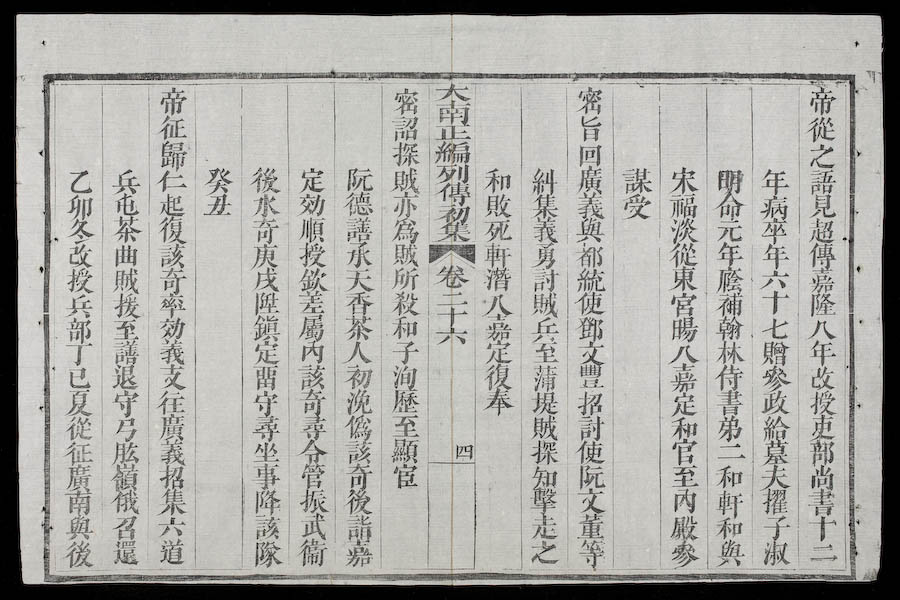 帝從之語見超傳嘉隆八年改授吏部尚書十二
年病坐年六十七贈參政給墓夫擢子淑
明命元年廕補翰林侍書弟二和軒和與
宋福淡從東宮暘入嘉定和官至內殿參
謀受
密旨回廣義與都統使鄧文豊招討使阮文董等
糾集義勇討賊兵至蒲堤賊探知擊走之
和敗死軒潛入嘉定復奉
大南正編列傳初集
卷二十六
四
密詔探賊亦為賊所殺和子洵歷至顯宦
阮德譱承天香茶人初浼偽該奇後詣嘉
定効順授欽差屬內該奇尋令管振武衞
後水奇庚戌陞鎮定畱守尋坐事降該隊
癸丑
帝征歸仁起復該奇率効義支往廣義招集六道
兵屯茶曲賊援至譱退守弓肱嶺俄召還
乙卯冬改授兵部丁巳夏從征廣南與後